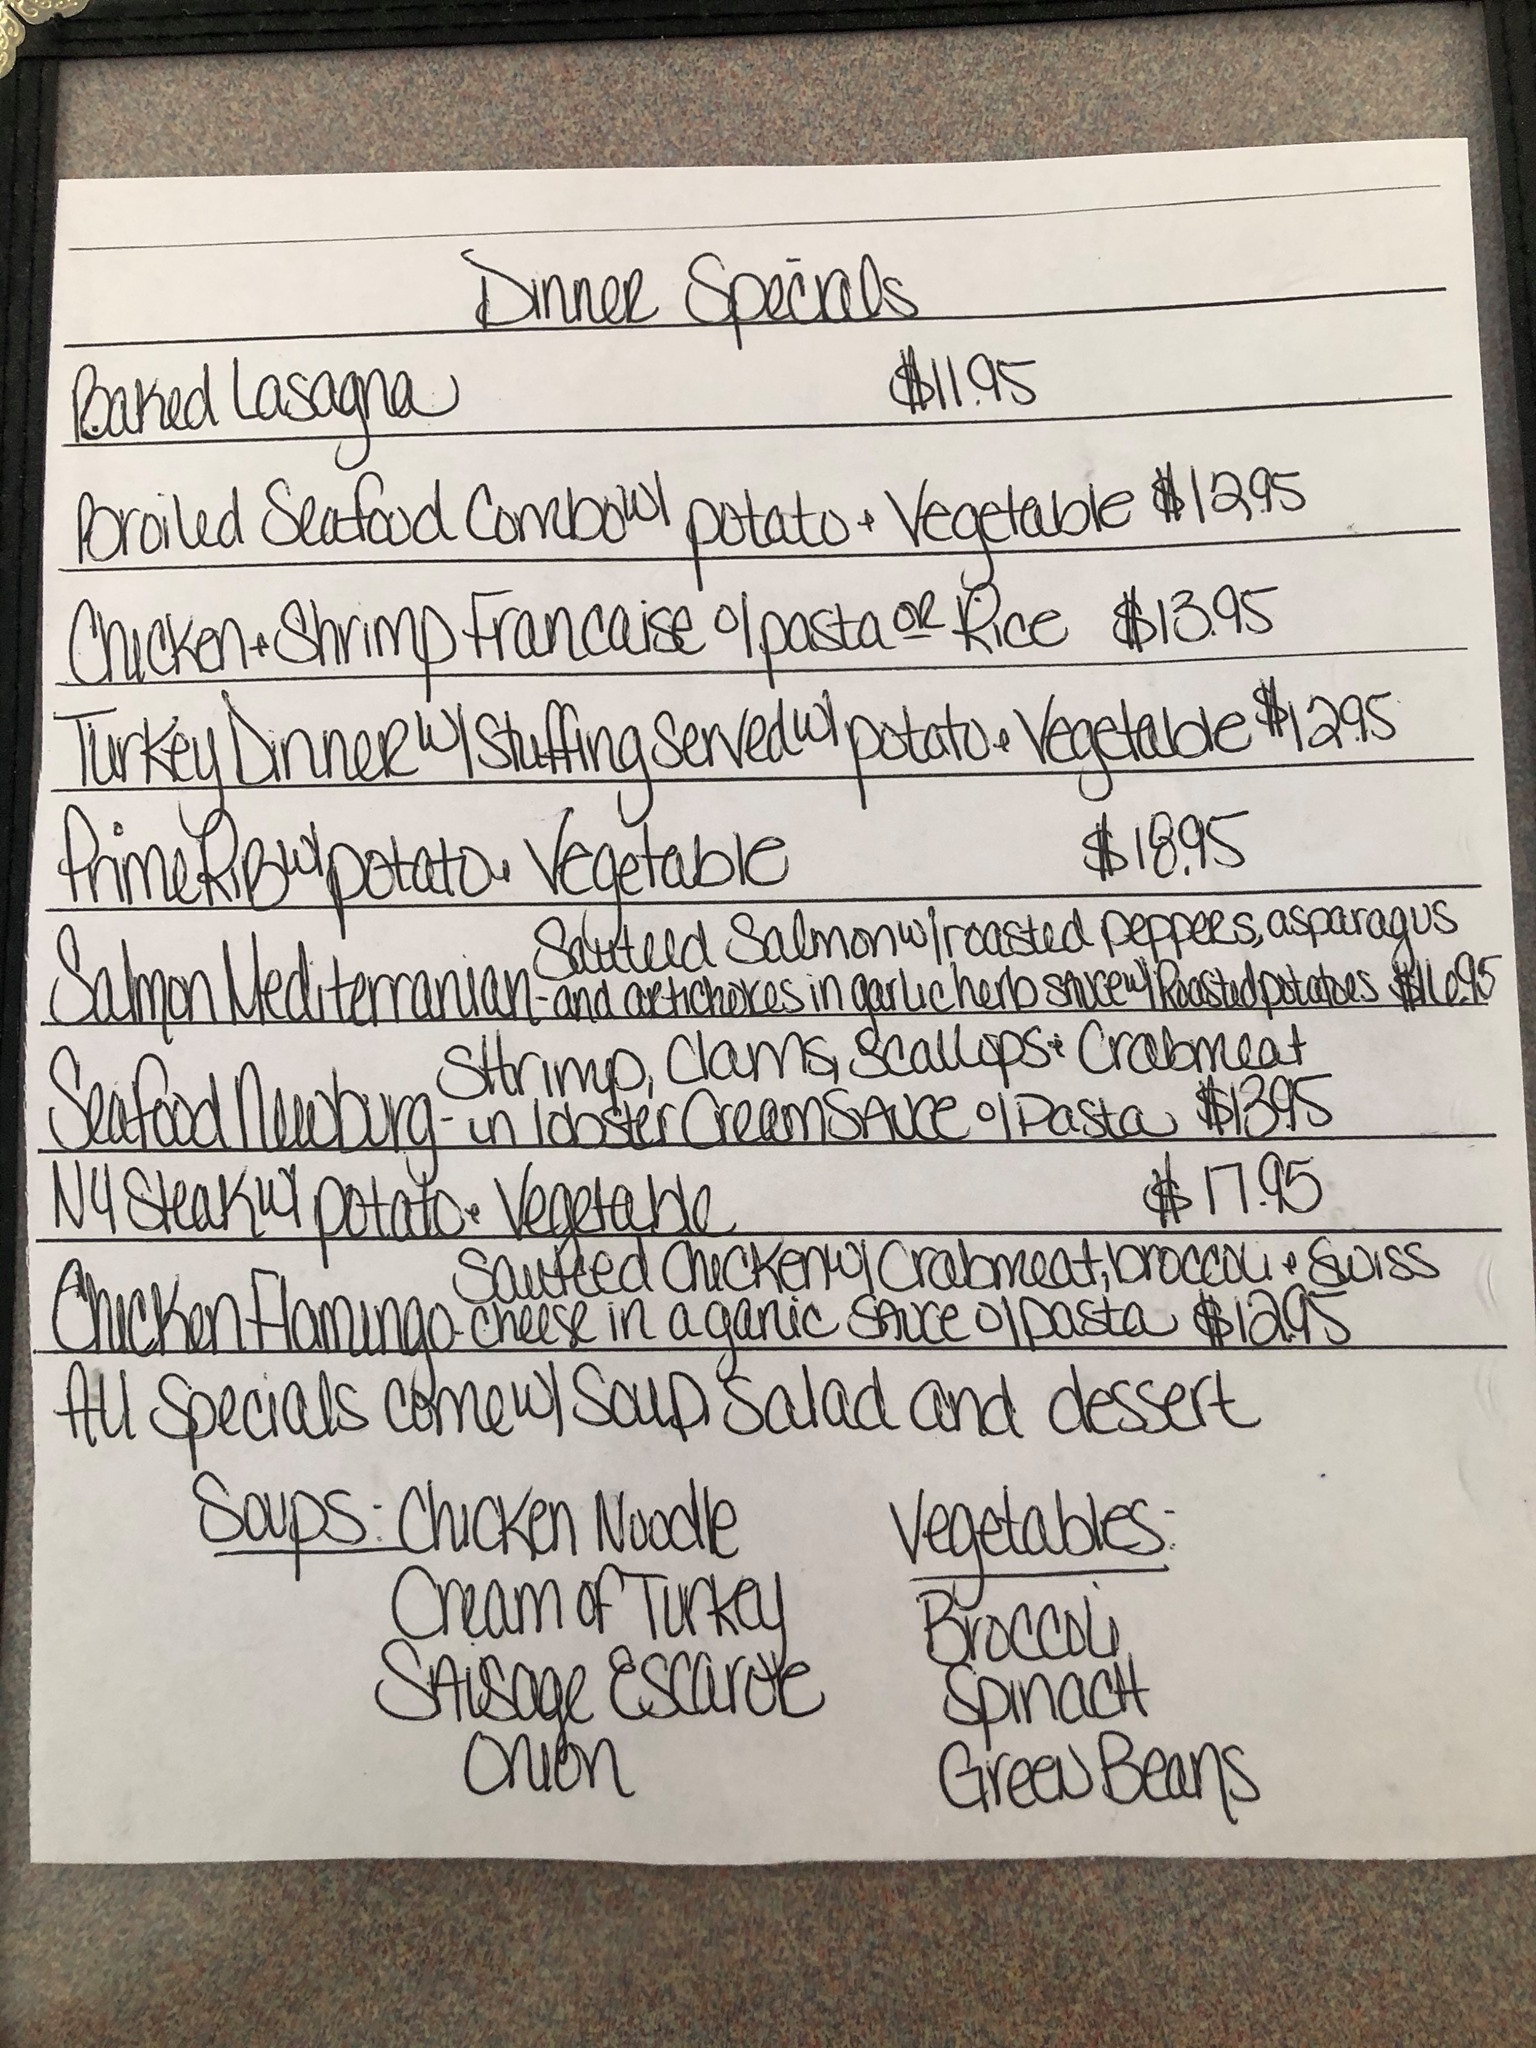 Dinner Specials
Baked Lasagna $11.95
Broiled Seafood Combo w/ potato + Vegetable $12.95
Chicken + Shrimp Francaise o/ pasta or Rice $13.95
Turkey Dinner w/ Stuffing Served w/ potato + Vegetable $12.95
Prime Rib w/ potato + Vegetable $18.95
Sauteed Salmon w/ roasted peppers, asparagus
Salmon Mediterranian - and artichokes in garlic herb sauce w/ Roasted potatoes $16.95
Shrimp, Clams, Scallops + Crabmeat
Seafood Newburg - in lobster Cream Sauce o/ Pasta $13.95
NY Steak w/ potato + Vegetable $17.95
Sauteed Chicken w/ Crabmeat, broccoli + Swiss
Chicken Flamingo - cheese in a garlic sauce o/ pasta $12.95
All Specials come w/ Soup, Salad and dessert
Soups: Chicken Noodle Vegetables:
Cream of Turkey Broccoli
Sausage Escarole Spinach
Onion Green Beans